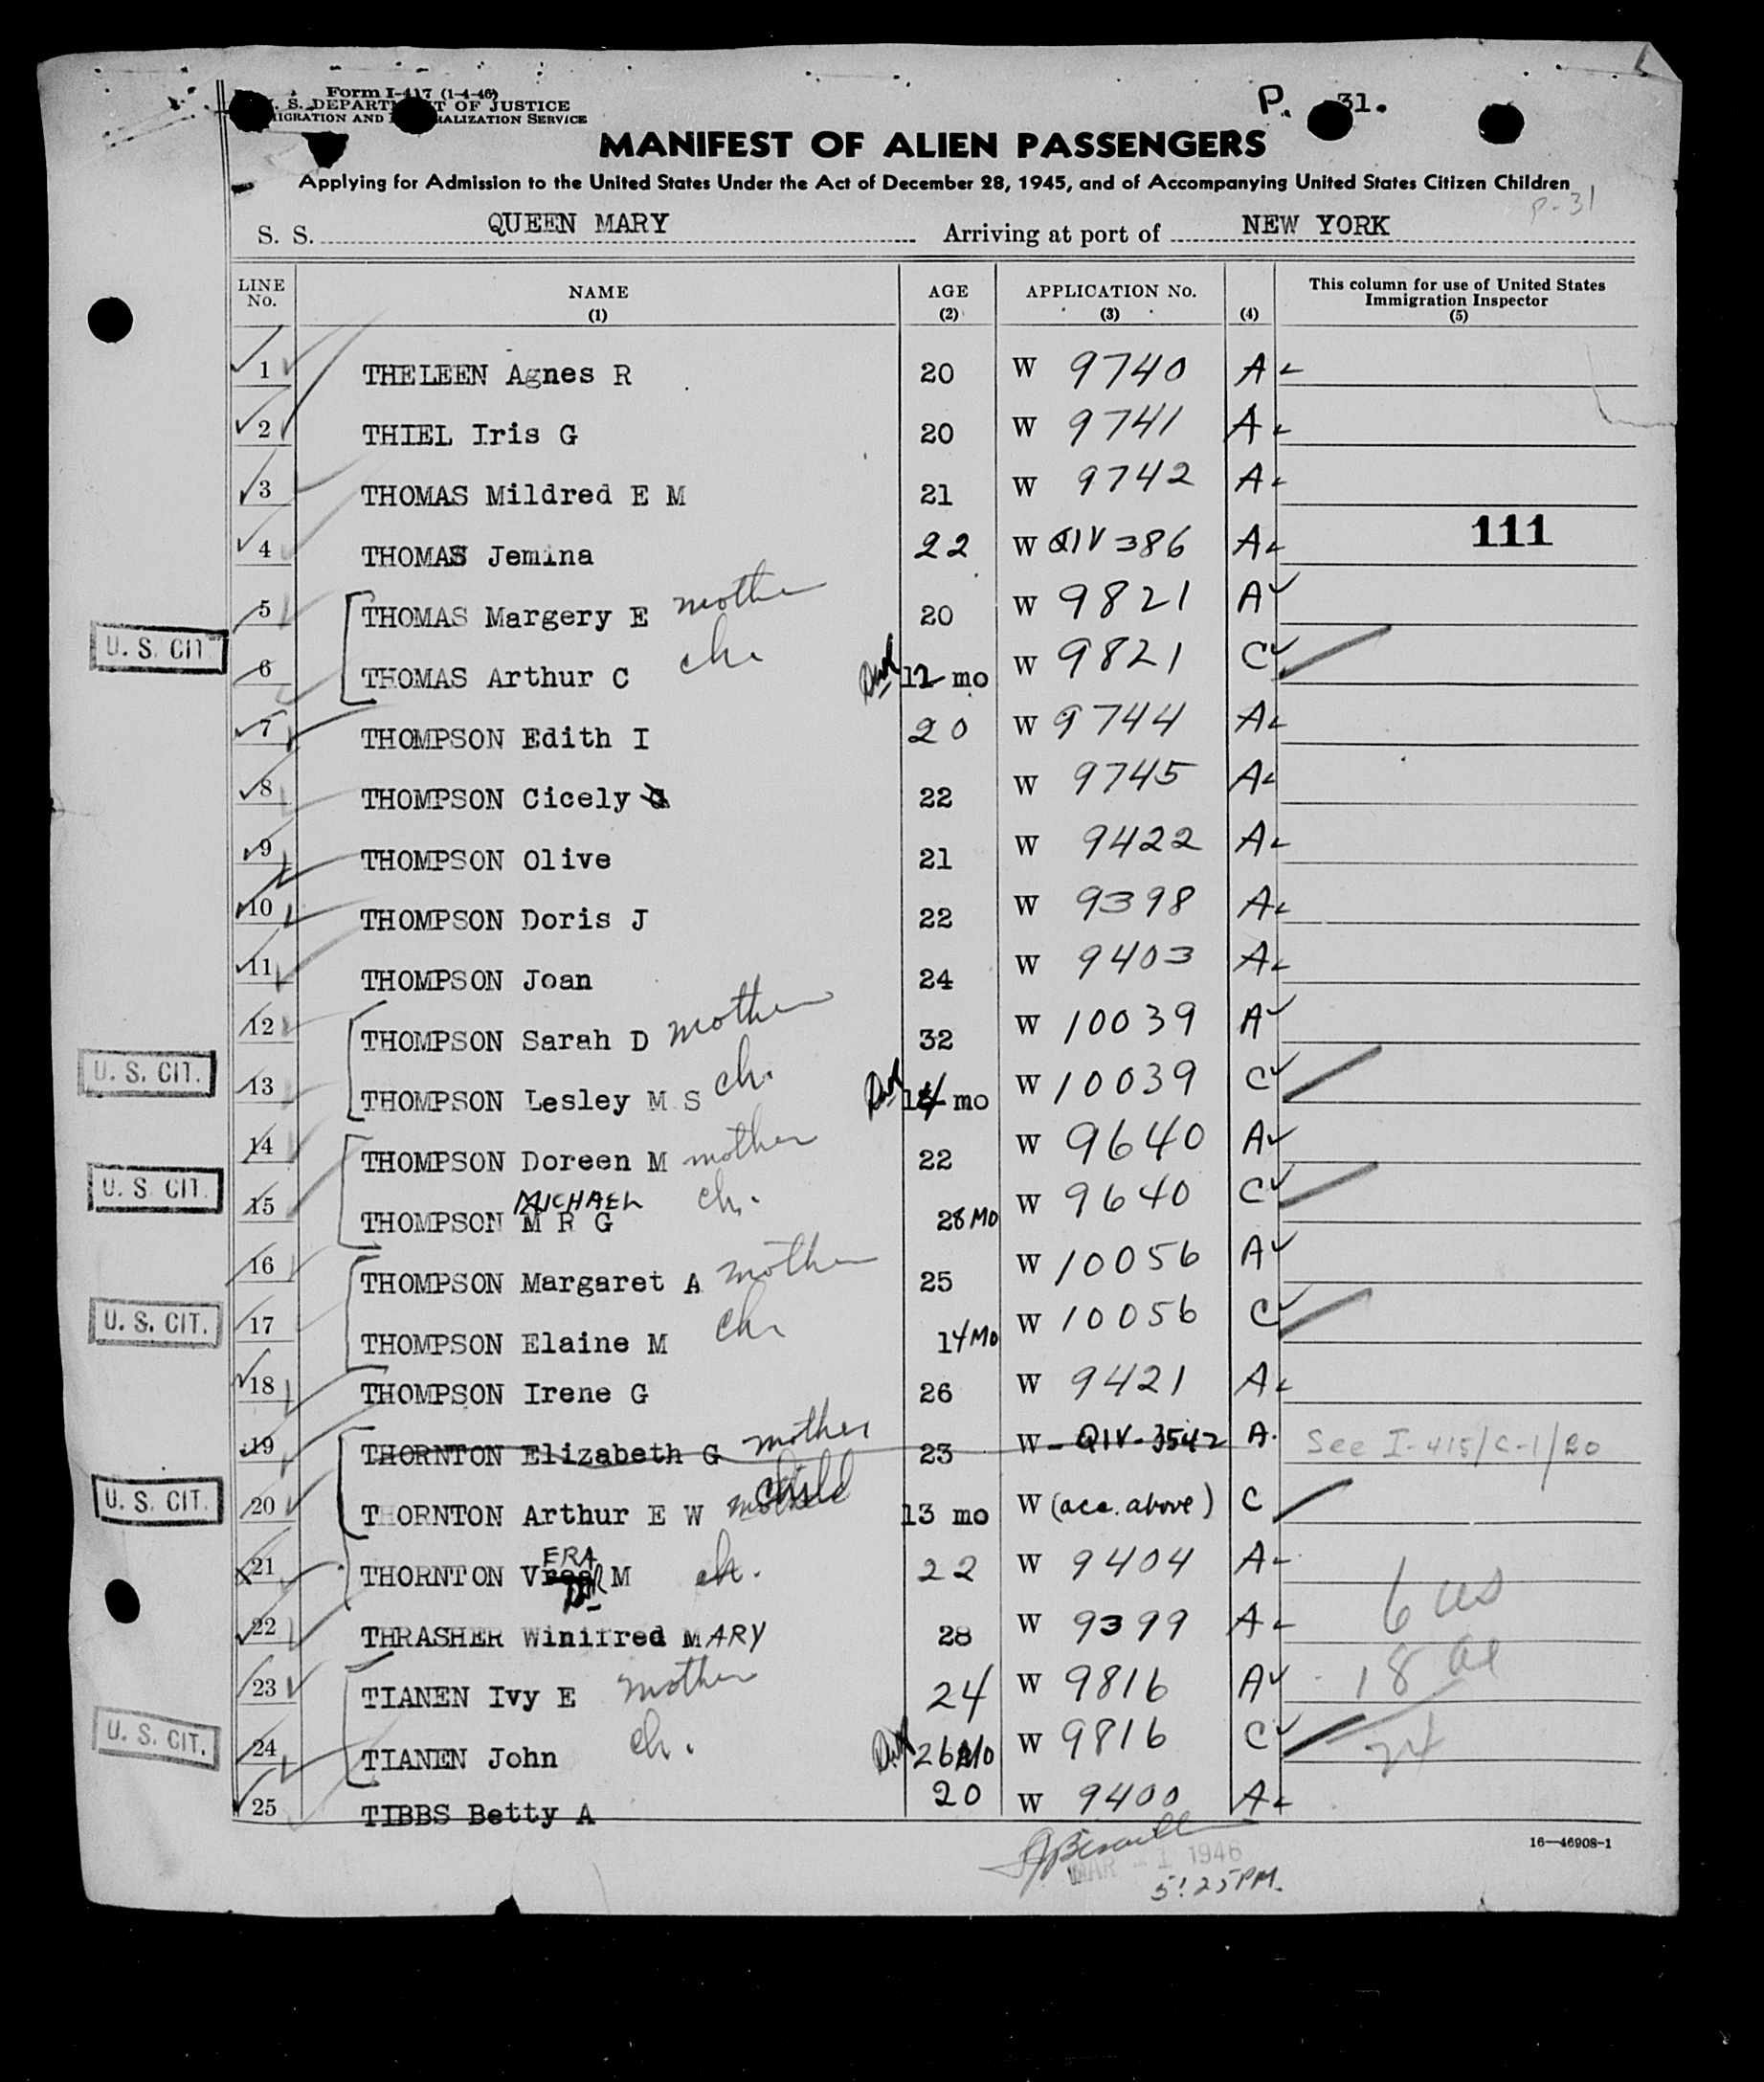 Form I-417 (1-4-46)
P. 31.
U. S. DEPARTMENT OF JUSTICE
IMMIGRATION AND NATURALIZATION SERVICE
MANIFEST OF ALIEN PASSENGERS
Applying for Admission to the United States Under the Act of December 28, 1945, and of Accompanying United States Citizen Children
P-31
S. S. QUEEN MARY Arriving at port of NEW YORK
LINE No. NAME (1) AGE (2) APPLICATION No. (3) (4) This column for use of United States Immigration Inspector (5)
1 THELEEN Agnes R 20 W 9740 A
2 THIEL Iris G 20 W 9741 A
3 THOMAS Mildred E M 21 W 9742 A
111
4 THOMAS Jemina 22 W QIV 386 A
5 THOMAS Margery E mother 20 W 9821 A
U. S. CIT.
6 THOMAS Arthur C ch. 12 mo W 9821 C
7 THOMPSON Edith I 20 W 9744 A
8 THOMPSON Cicely 22 W 9745 A
9 THOMPSON Olive 21 W 9422 A
10 THOMPSON Doris J 22 W 9398 A
11 THOMPSON Joan 24 W 9403 A
12 THOMPSON Sarah D mother 32 W 10039 A
U. S. CIT.
13 THOMPSON Lesley M S ch. 14 mo W 10039 C
14 THOMPSON Doreen M mother 22 W 9640 A
U. S. CIT.
MICHAEL
15 THOMPSON M R G ch. 28 MO W 9640 C
16 THOMPSON Margaret A mother 25 W 10056 A
U. S. CIT.
17 THOMPSON Elaine M ch. 14 MO W 10056 C
18 THOMPSON Irene G 26 W 9421 A
19 THORNTON Elizabeth G mother 23 W - QIV-3542 A. See I-415/C-1/20
U. S. CIT.
20 THORNTON Arthur E W child 13 mo W (acc. above) C
ERA
21 THORNTON V M ch. 22 W 9404 A
6 us
22 THRASHER Winifred MARY 28 W 9399 A
18 al
23 TIANEN Ivy E mother 24 W 9816 A
U. S. CIT.
24 TIANEN John ch. 26 MO W 9816 C
24
25 TIBBS Betty A 20 W 9400 A
16—46908-1
MAR - 1 1946
5:25 PM.